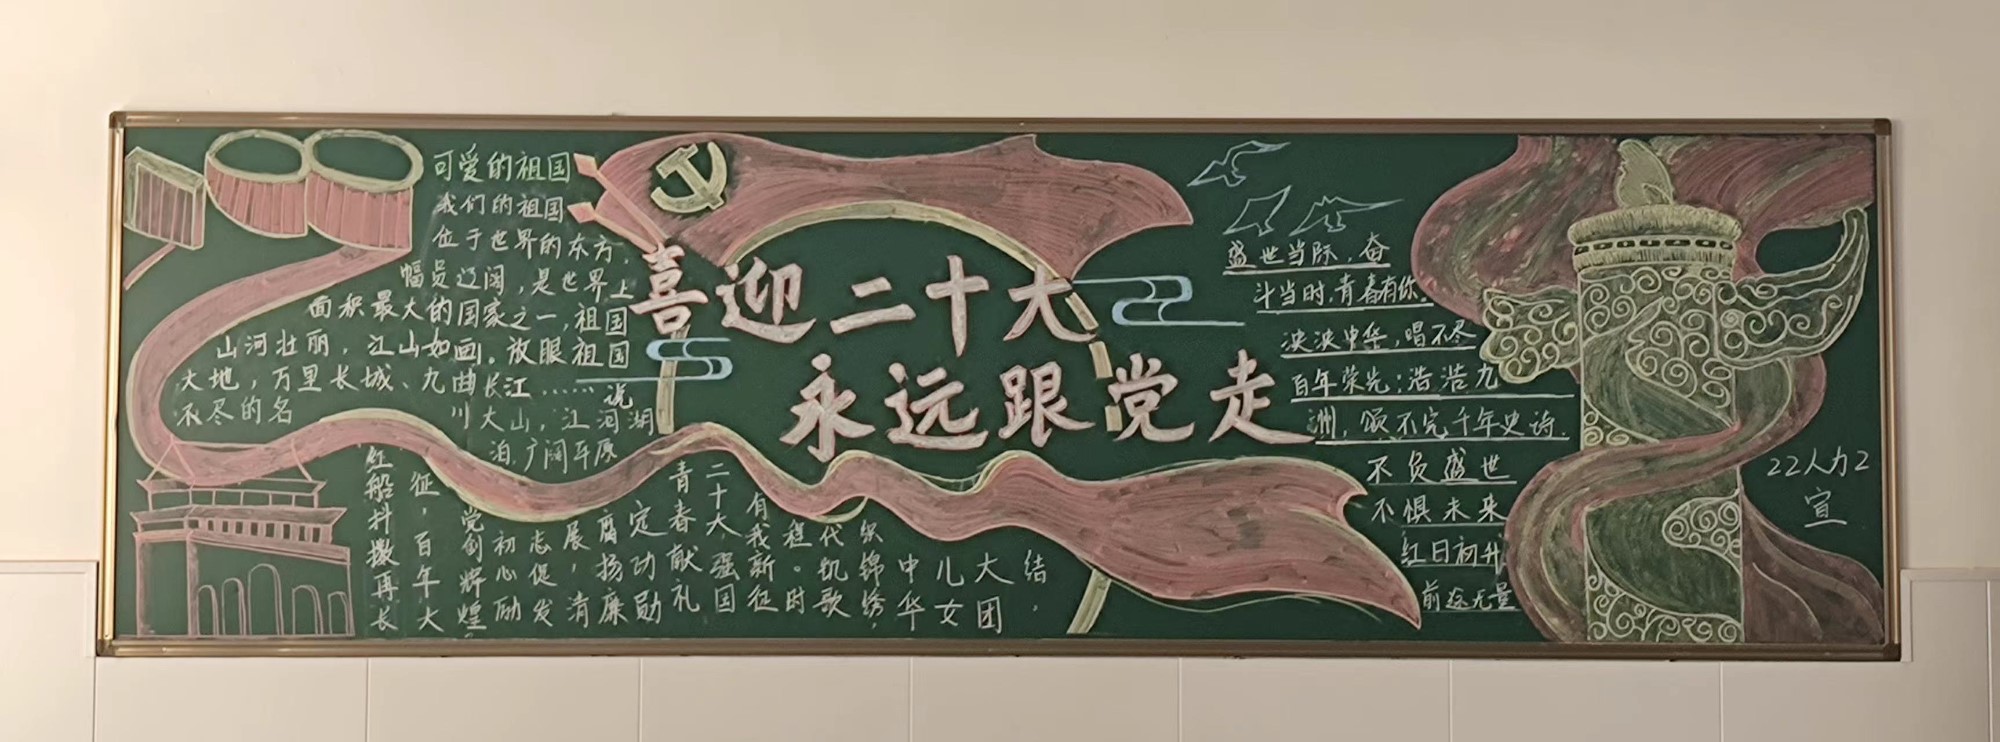 100
可爱的祖国
我们的祖国
位于世界的东方,
幅员辽阔,是世界上
面积最大的国家之一,祖国
山河壮丽,江山如画。放眼祖国
大地,万里长城、九曲长江……说
不尽的名
川大山,江河湖
泊,广阔平原
红船抖擞再长
征,百年大
党创辉煌。
初心励
志促发
展,清
腐扬廉
定功勋
青春献礼
二十大,强国
有我新征
程。时
代凯歌
织锦绣,
中华
儿女
大团
结,
喜迎二十大
永远跟党走
盛世当际,奋
斗当时,青春有你。
泱泱中华,唱不尽
百年荣光;浩浩九
洲,颂不完千年史诗.
不负盛世
不惧未来
红日初升
前途无量
22人力2
宣